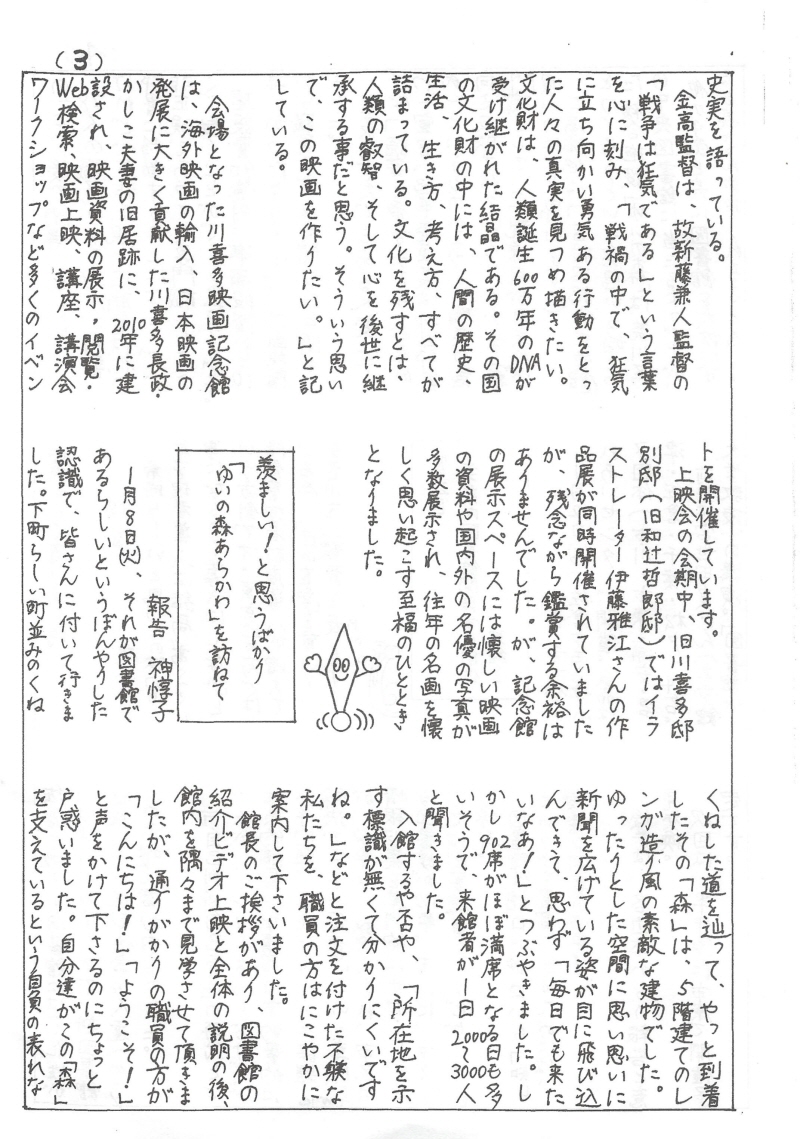 (3)
史実を語っている。
金高監督は、故新藤兼人監督の
「戦争は狂気である」という言葉
を心に刻み、「戦禍の中で、狂気
に立ち向かい勇気ある行動をとっ
た人々の真実を見つめ描きたい。
文化財は、人類誕生600万年のDNAが
受け継がれた結晶である。その国
の文化財の中には、人間の歴史、
生活、生き方、考え方、すべてが
詰まっている。文化を残すとは、
人類の叡智、そして心を後世に継
承する事だと思う。そういう思い
で、この映画を作りたい。」と記
している。
会場となった川喜多映画記念館
は、海外映画の輸入、日本映画の
発展に大きく貢献した川喜多長政・
かしこ夫妻の旧居跡に、2010年に建
設され、映画資料の展示・閲覧・
Web検索、映画上映、講座、講演会
ワークショップなど多くのイベン
トを開催しています。
上映会の会期中、旧川喜多邸
別邸(旧和辻哲郎邸)ではイラ
ストレーター伊藤雅江さんの作
品展が同時開催されていました
が、残念ながら鑑賞する余裕は
ありませんでした。が、記念館
の展示スペースには懐しい映画
の資料や国内外の名優の写真が
多数展示され、往年の名画を懐
しく思い起こす至福のひととき
となりました。
羨ましい!と思うばかり
「ゆいの森あらかわ」を訪ねて
報告 神惇子
1月8日(火)、それが図書館で
あるらしいというぼんやりした
認識で、皆さんに付いて行きま
した。下町らしい町並みのくね
くねした道を辿って、やっと到着
したその「森」は、5階建てのレ
ンガ造り風の素敵な建物でした。
ゆったりとした空間に思い思いに
新聞を広げている姿が目に飛び込
んできて、思わず「毎日でも来た
いなあ!」とつぶやきました。し
かし902席がほぼ満席となる日も多
いそうで、来館者が1日2000〜3000人
と聞きました。
入館するや否や、「所在地を示
す標識が無くて分かりにくいです
ね。」などと注文を付けた不躾な
私たちを、職員の方はにこやかに
案内して下さいました。
館長のご挨拶があり、図書館の
紹介ビデオ上映と全体の説明の後、
館内を隅々まで見学させて頂きま
したが、通りがかりの職員の方が
「こんにちは!」「ようこそ!」
と声をかけて下さるのにちょっと
戸惑いました。自分達がこの「森」
を支えているという自負の表れな